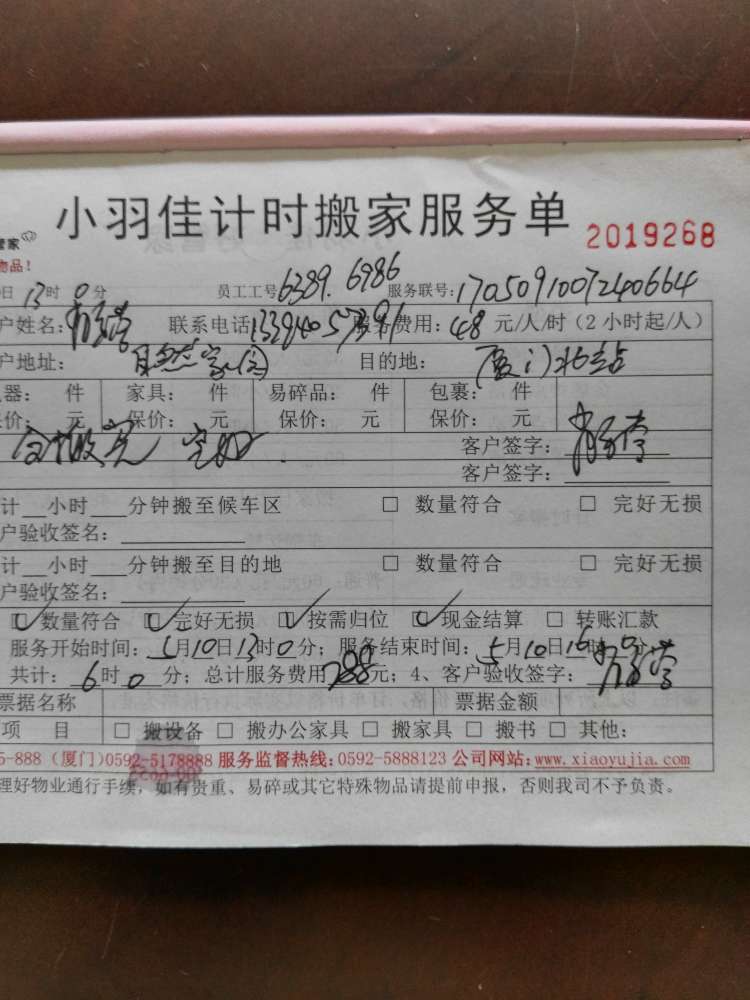 小羽佳计时搬家服务单 2019268
管家
物品!
日 13时 0分 员工工号 6389. 6986 服务联号: 1705091007240664
户姓名: 联系电话 服务费用: 48 元/人/时(2小时起/人)
户地址: 自然家园 目的地: 厦门北站
器: 件 家具: 件 易碎品: 件 包裹: 件
价: 元 保价: 元 保价: 元 保价: 元
搬完 完好. 客户签字:
客户签字:
计 小时 分钟搬至候车区 □ 数量符合 □ 完好无损
户验收签名:
计 小时 分钟搬至目的地 □ 数量符合 □ 完好无损
户验收签名:
☑ 数量符合 ☑ 完好无损 ☑ 按需归位 ☑ 现金结算 □ 转账汇款
服务开始时间: 5月10日13时0分; 服务结束时间: 5月10日16时0分
共计: 6时0分; 总计服务费用288元; 4、客户验收签字:
票据名称 票据金额
项 目 □ 搬设备 □ 搬办公家具 □ 搬家具 □ 搬书 □ 其他:
5-888 (厦门)0592-5178888 服务监督热线: 0592-5888123 公司网站: www.xiaoyujia.com
理好物业通行手续, 如有贵重、易碎或其它特殊物品请提前申报, 否则我司不予负责。